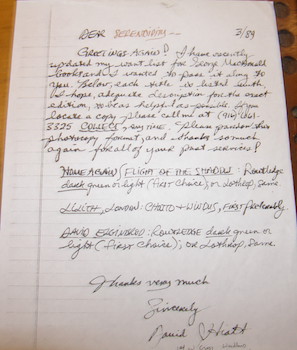 DEAR SERENDIPITY — 3/89
GREETINGS AGAIN! I have recently
updated my want list for George MacDonald
books and I wanted to pass it along to
you. Below, each title is listed with,
I hope, adequate description for the exact
edition, to be as helpful as possible. If you
locate a copy please call me at (916) 661-
3325 COLLECT, anytime. Please pardon this
photocopy format, and thanks so much
again for all of your past services!
FLIGHT OF THE SHADOW: Routledge
dark green or light (FIRST Choice), or Lothrop, Same.
LILITH, LONDON: CHATTO + WINDUS, FIRST preferably.
DAVID ELGINBROD: ROUTLEDGE dark green or
light (first choice); or Lothrop, Same.
Thanks very much
Sincerely
David